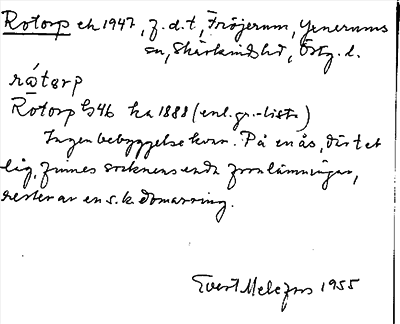 Rotorp ek 1947, f.d.t, Fröjerum, Gerums
sn, Skärkinds hd, Östg. l.
rótarp
Rotorp G46 ha 1888 (enl. gr.-lista)
Ingen bebyggelse kvar. På en ås, där t et
lig, finnes socknens enda fornlämningar,
rester av en s.k. domarring.
Evert Melefors 1955